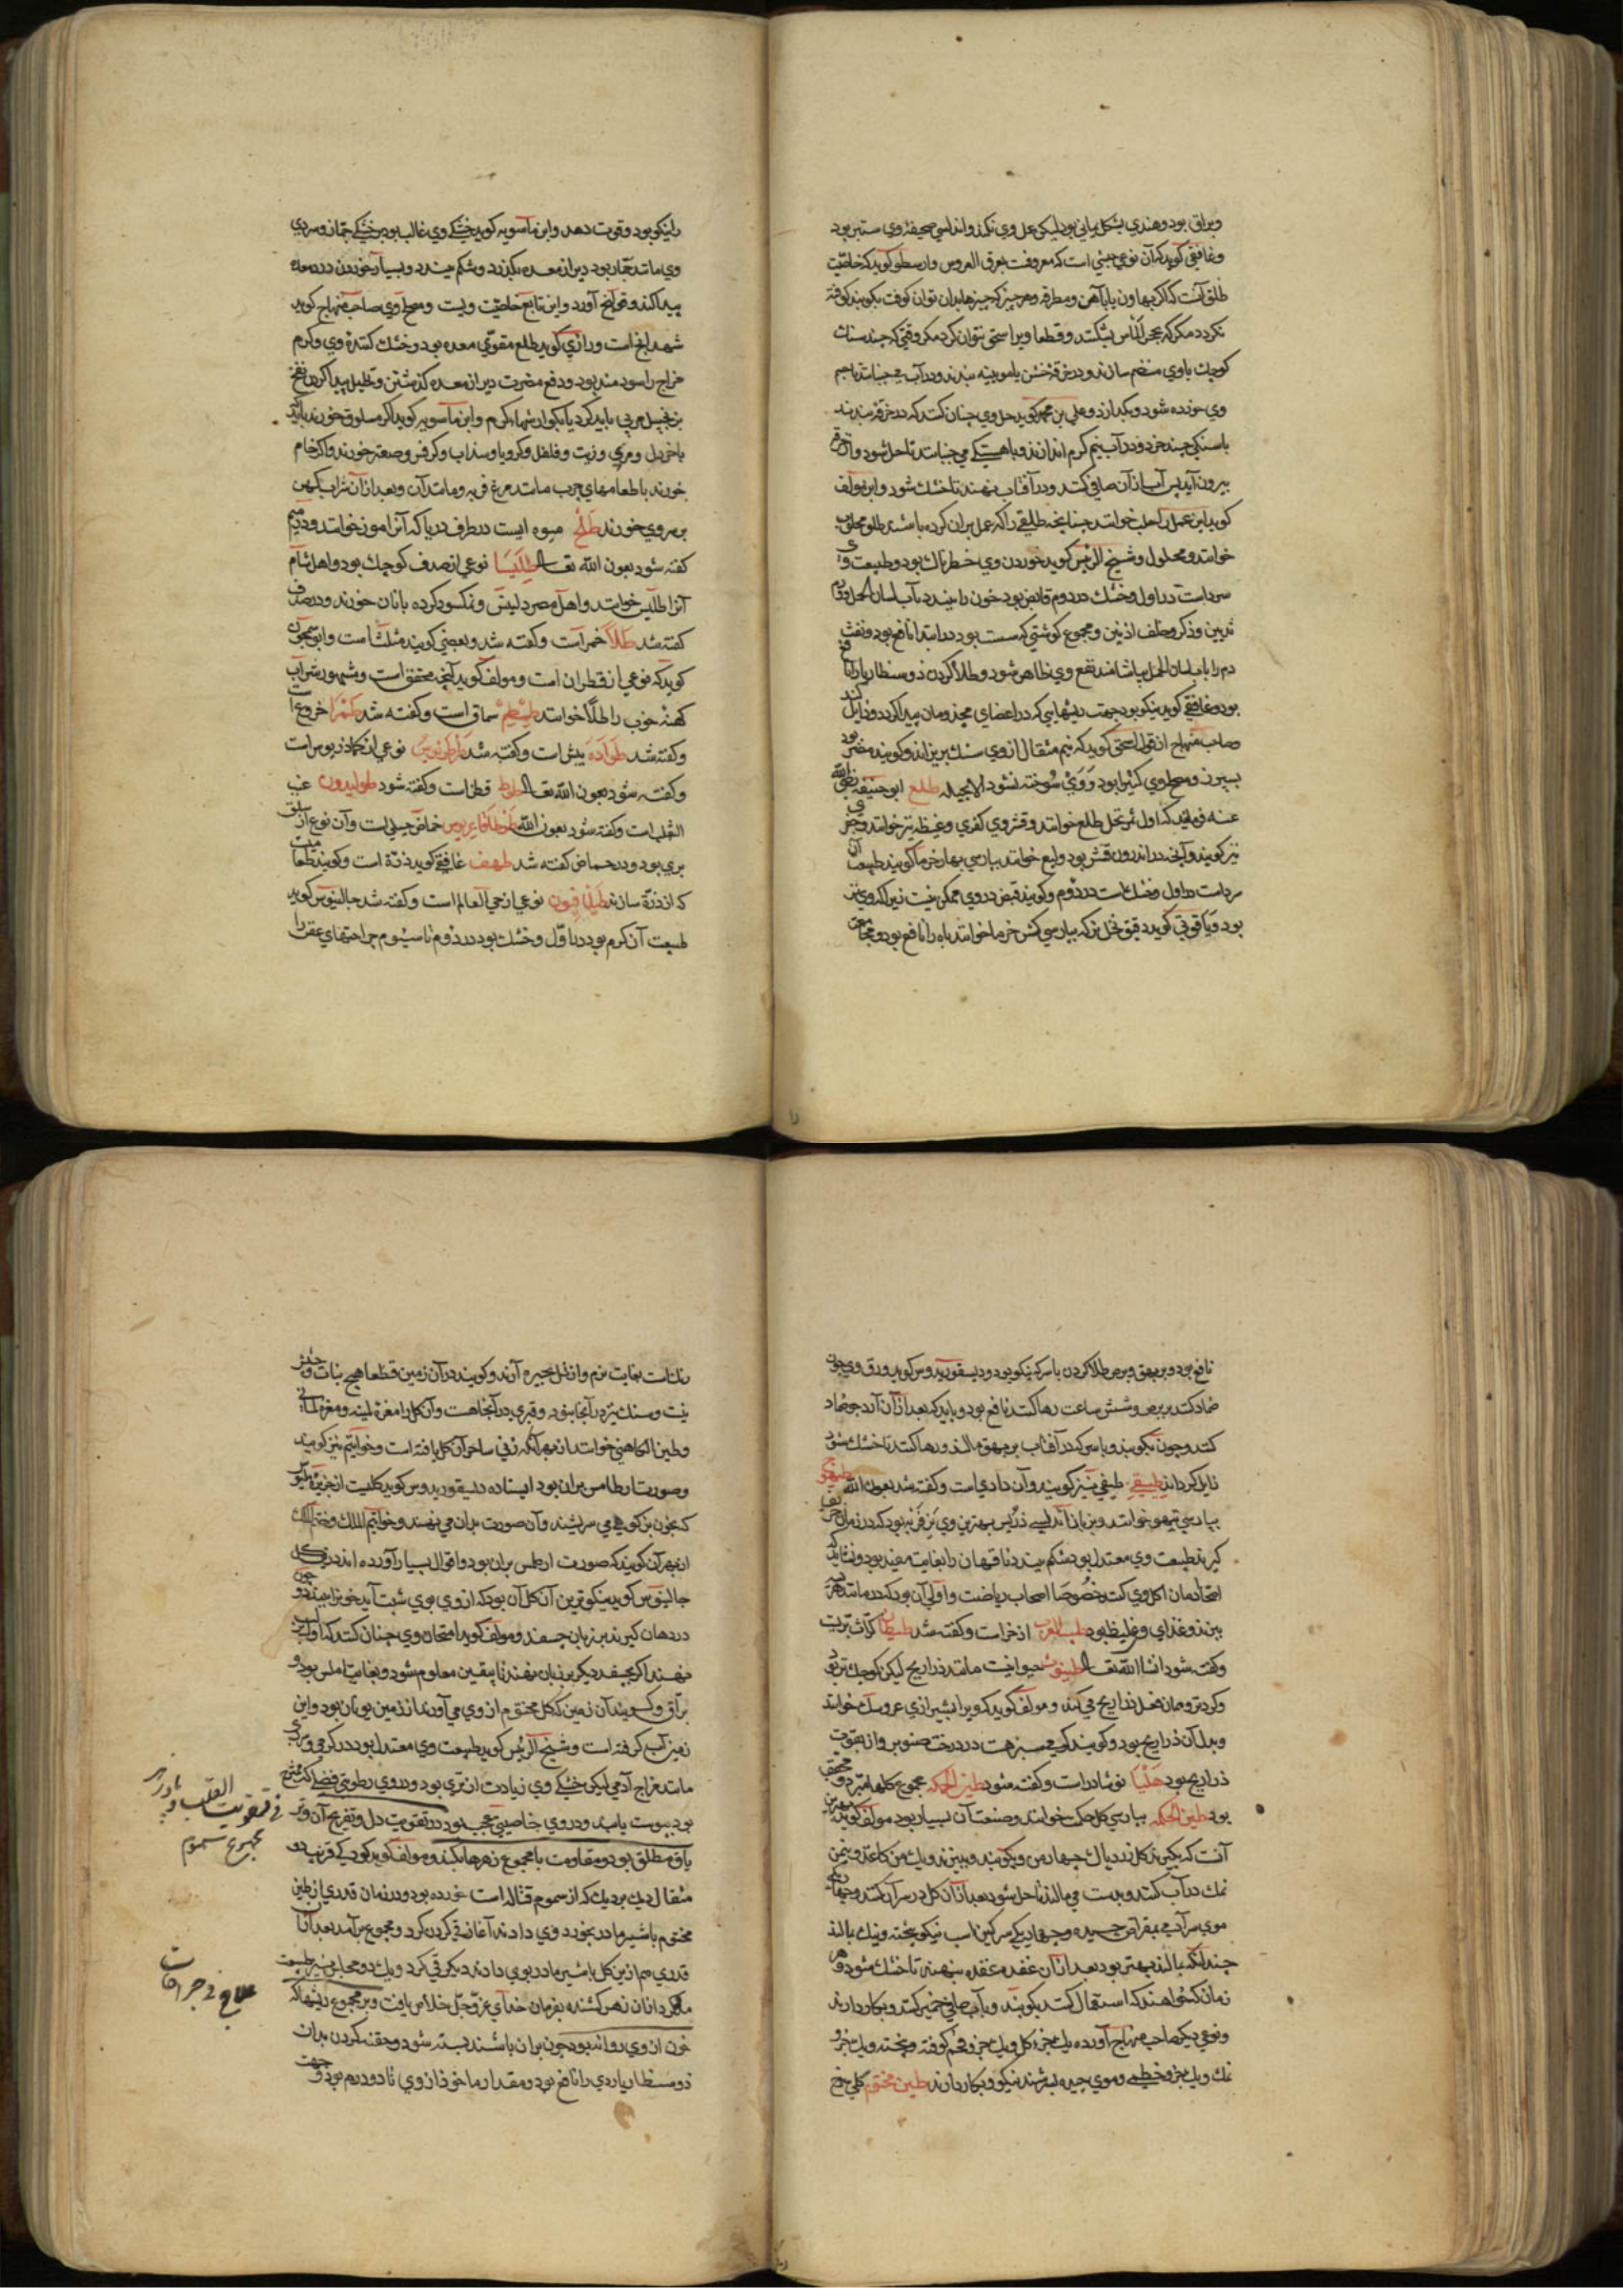 وبراق بود وهندی بشکل یمانی بود لیکن عمل وی نکند واندلسی صحیفه وی ستبر بود
وغافقی کوید که آن نوعی جبسی است که معروفست بعرق العروس وارسطو کوید که خاصیت
طلق آنست که اکر بهاون یا باهن ومطرقه وهر چیز که چیزها بدان توان کوفت بکوبند کوفته
نکردد مکر که بحجر الماس بشکنند وقطعا ویرا سحق نتوان کرد مکر وقتی که چند سنک
کوچک باوی منضم سازند ودر خرقه خشن یا مویینه بندند ودر آب می جنبانند تا جسم
وی خورده شود وبکدازد وعلی بن محمد کوید حل وی چنان کنند که در خرقه بندند
با سنکی چند خرد ودر آب نیم کرم اندازند وباهستکی می جنبانند تا حل شود واز خرقه
بیرون آید پس آب از آن صافی کنند ودر آفتاب نهند تا خشک شود وابن مولف
کوید این عمل را حلب خوانند چنانچه طلقی را که عمل بران کرده باشند طلق محلوب
خوانند ومحلول وشیخ الرئیس کوید خوردن وی خطرناک بود وطبیعت وی
سرد است در اول وخشک در دوم قابض بود خون را ببندد باب لسان الحمل وورم
ثدیین وذکر وخلف اذنین ومجموع کوشتی که سست بود در ابتدا نافع بود ونفث
دم را باب لسان الحمل بیاشامند نفع وی ظاهر شود وطلا کردن ذوسنطاریا را نافع
بود وغافقی کوید نیکو بود جهت ریشهایی که در اعضای مجذومان پیدا کردد وزایل کند
وصاحب منهاج از قول اسحق کوید که نیم مثقال از وی سنک بریزاند وکویند مضر بود
بسپرز ومصلح وی کتیرا بود و وی سوخته نشود الا بحیله طلع ابو حنیفه رضی الله
عنه فرماید که اول ثمر نخل طلع خوانند وقشر وی کفری وغیظه نیز خوانند وجف
نیز کویند وآنچه در اندرون قشر بود ولیع خوانند بپارسی بهار خرما کویند طبیعت آن
سرد است در اول وخشک است در دوم وکویند قبض در وی ممکن نیست زیرا که وی تر
بود ویاقوتی کوید دقیق نخل نر که بپارسی کشن خرما خوانند باه را نافع بود ومجامعت
را نیکو بود وقوت دهد وابن ماسویه کوید خشکی وی غالب بود بر خشکی جمار وسردی
وی مانند جمار بود دیر از معده بکذرد وشکم ببندد وبسیار خوردن درد معده
پیدا کند وقولنج آورد واین تابع خاصیت ویست ومصلح وی صاحب منهاج کوید
شهد است ورازی کوید طلع مقوی معده بود وخشک کننده وی وکرم
مزاج را سودمند بود ودفع مضرت دیر از معده کذشتن وتحلیل پیدا کردن نفخ
بزنجبیل مربی باید کرد یا بجوارشهاء کرم وابن ماسویه کوید اکر مسلوق خورند باید که
با خردل ومری وزیت وفلفل وکرویا وسداب وکرفس وصعتر خورند واکر خام
خورند با طعامهای چرب مانند مرغ فربه ومانند آن وبعد از آن شراب کهن
بر سر وی خورند طلح میوه ایست در طرف دریا که آنرا موز خوانند ودر میم
کفته شود بعون الله تعالی طلیسا نوعی از صدف کوچک بود واهل شام
آنرا طلیس خوانند واهل مصر دلینس ونمکسود کرده با نان خورند ودر صدف
کفته شد طلا خمر است وکفته شد وبعضی کویند مثلث است وابو سمجون
کوید که نوعی از قطران است ومولف کوید آنچه محقق است ومشهور شراب
کهنه خوب را طلا خوانند طمطم سماق است وکفته شد طمرا خروع است
وکفته شد طواره بیش است وکفته شد نوعی از کماذریوس است
وکفته شود بعون الله تعالی طوط قطن است وکفته شود طولیدون عنب
الثعلب است وکفته شود بعون الله حماض جبلی است وآن نوع از سلق
بری بود ودر حماض کفته شد طهف غافقی کوید ذرة است وکویند طعامیست
که از ذرة سازند طیلافیون نوعی از حی العالم است وکفته شد جالینوس کوید
طبیعت آن کرم بود در اول وخشک بود در دوم تا سیوم جراحتهای عفن را
نافع بود وبر بهق وبرص طلا کردن با سرکه نیکو بود ودیسقوریدوس کوید ورق وی چون
ضماد کنند بر برص وشش ساعت رها کنند نافع بود وباید که بعد از آن آرد جو ضماد
کنند وچون بکوبند وبا سرکه در آفتاب بر بهق مالند ورها کنند تا خشک شود
زایل کرداند طیقی طیفی نیز کویند وآن دادی است وکفته شد بعون الله طیهوج
بپارسی تیهو خوانند وبزبان اندلسی ذریس بهترین وی نر فربه بود که در زمان خریف
کیرند طبیعت وی معتدل بود شکم ببندد ناقهان را بغایت مفید بود ونشاید که
امتحا دمان اکل وی کنند خصوصا اصحاب ریاضت واولی آن بود که در مانند هریسه
بپزند وغذای وی غلیظ بود طیب العرب اذخر است وکفته شد طیطان کراث بریست
وکفته شود انشا الله تعالی طینوث حیوانیست مانند ذراریح لیکن کوچک تر بود
وکرد تر وهمان فعل ذراریح می کند ومولف کوید که ویرا بشیرازی عروسک خوانند
وبدل آن ذراریح بود وکویند کرمی سبز هست در درخت صنوبر وان بقوت
ذراریح بود طلیا نوشادر است وکفته شود طین الحکمه مجموع کلها مبرد ومجفف
بود طین الحکمه بپارسی کل حکمت خوانند وصنعت آن بسیار بود مولف کوید بهترین
آنست که بکیرند کل زرد پاک چهار من وبکوبند وببیزند ویک من کاغذ ونیم من
نمک در آب کنند وبدست می مالند تا حل شود بعد از آن کل در سر آن کنند وچهار یکی
موی سر آدمی بمقراض چیده وچهار یکی سرکین اسب نیکو بیخته ونیک بمالند
چندانکه بمالند بهتر بود بعد از آن عقده عقده بنهند تا خشک شود وهر
زمان که خواهند که استعمال کنند بکوبند وباب صافی خمیر کنند وبکار دارند
ونوعی دیکر صاحب منهاج آورده یک جزو کل ویک جزو فحم کوفته وبیخته ویک جزو
نمک ویک جزو خطمی وموی چیده بسرشند نیکو وبکار دارند طین مختوم کلی سرخ
رنک است بغایت نرم واز تل بحیره آرند وکویند در آن زمین قطعا هیچ نبات وحشیش
نیست وسنک نیز در آنجا نبود وقبری در آنجا هست وآن کل را مغرة لمینه ومغرة لمنا
وطین الکاهنی خوانند از بهر آنکه زنی ساحر آن کل یافته است وخواتیم نیز کویند
وصورت ارطامس بران بود ایستاده دیسقوریدوس کوید کلیست از جزیره ملیون
که بخون بز کوهی می سرشند وآن صورت بران می نهند وخواتیم الملک وختم الملک
از بهر آن کویند که صورت ارطمس بران بود واقوال بسیار آورده اند در
جالینوس کوید نیکوترین آن کل آن بود که از وی بوی شبت آید خون را ببندد وچون
در دهان کیرند بر زبان چسفد ومولف کوید امتحان وی چنان کنند که اول بر لب
نهند اکر بچسفد دیکر بر زبان نهند تا بیقین معلوم شود وبغایت املس بود و
براق وکویند آن زمین که کل مختوم از وی می آوردند از زمین یونان بود واین
زمین آب کرفته است وشیخ الرئیس کوید طبیعت وی معتدل بود در کرمی وسردی
مانند مزاج آدمی لیکن خشکی وی زیادت از تری بود ودر وی رطوبتی فضلی که ممتزج
بود بیبوست یابند ودر وی خاصیتی عجیب بود در تقویت دل وتفریح آن وتر
یاق مطلق بود ومقاومت با مجموع زهرها بکند ومولف کوید کودکی قریب دو
مثقال دیک بر دیک که از سموم قتاله است خورده بود در زمان قدری از طین
مختوم با شیر مادر بخورد وی دادند آغاز قی کردن کرد ومجموع بر آمد بعد از آن
قدری هم ازین کل با شیر مادر بوی دادند دیکر قی کرد ویک دو مجلس نیز طبیعت
ماند کردانید از زهر کشنده بفرمان خدای عز وجل خلاص یافت وبر مجموع ریشها که
خون از وی روانه بود چون بران باشند بسته شود وحقنه کردن بدان
ذوسنطاریای ردی را نافع بود ومقدار ماخوذ از وی تا دو درم بود وجهت
فی تقویت القلب وپادزهر
مجموع سموم
علاج فی جراحات